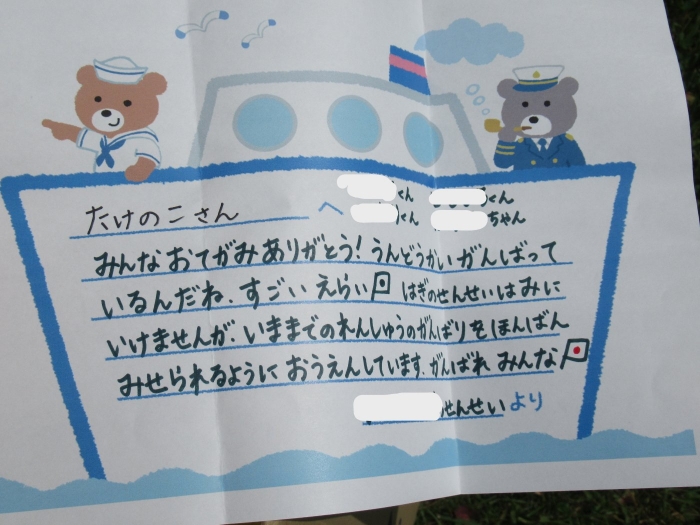 くん くん
たけのこさん へ くん ちゃん
みんなおてがみありがとう！うんどうかいがんばって
いるんだね、すごいえらい はぎのせんせいはみに
いけませんが、いままでのれんしゅうのがんばりをほんばん
みせられるようにおうえんしています。がんばれみんな
せんせいより